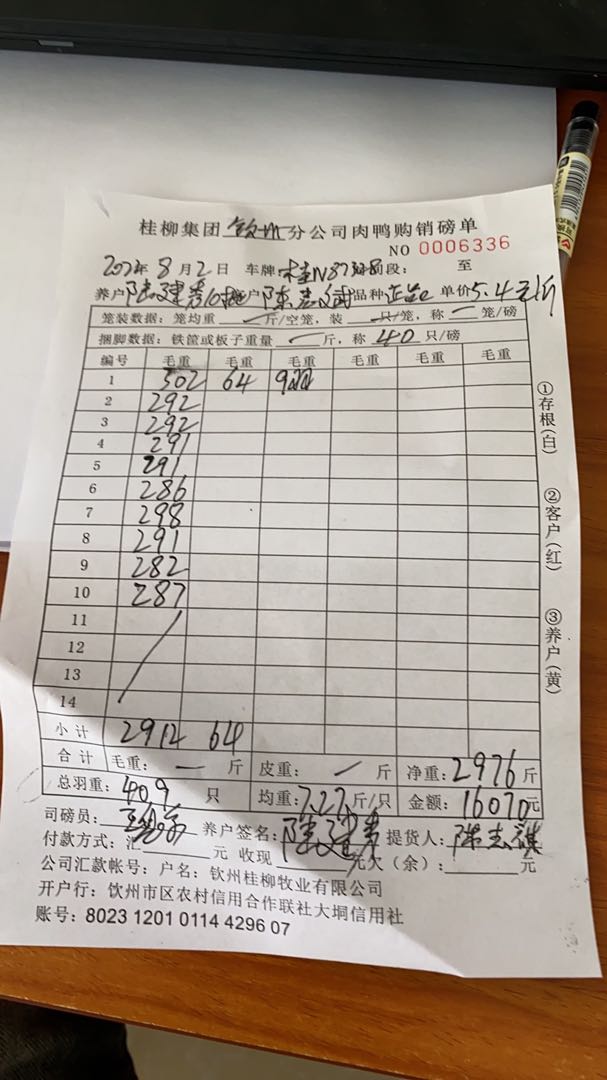 桂柳集团钦州分公司肉鸭购销磅单
NO 0006336
8月2日 车牌 段: 至
养户陆建秀 客户陈志 品种 单价5.4元/斤
笼装数据: 笼均重 — 斤/空笼, 装 — 只/笼, 称 — 笼/磅
捆脚数据: 铁筐或板子重量 — 斤, 称 40 只/磅
编号 毛重 毛重 毛重 毛重 毛重 毛重
1 302 64
2 292
3 292
4 291
5 291
6 286
7 298
8 291
9 282
10 287
11
12
13
14
小计 2912 64
合计 毛重: — 斤 皮重: 斤 净重: 2976 斤
总羽重: 409 只 均重: 7.27 斤/只 金额: 16070 元
司磅员: 养户签名: 陆建秀 提货人: 陈志
付款方式: 汇 元 收现 元欠(余): 元
公司汇款帐号: 户名: 钦州桂柳牧业有限公司
开户行: 钦州市区农村信用合作联社大垌信用社
账号: 8023 1201 0114 4296 07
①存根(白)
②客户(红)
③养户(黄)